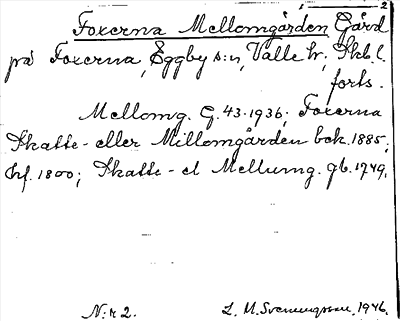 2
Foxerna Mellomgården, Gård
på Foxerna, Eggby s:n, Valle hr, Skb. l.
forts.
Mellomg. G. 43. 1936; Foxerna
Skatte- eller Millomgården bok. 1885;
hf. 1800; Skatte- el Mellumg. gb. 1749.
N:r 2. L. M. Svenungsson. 1946.